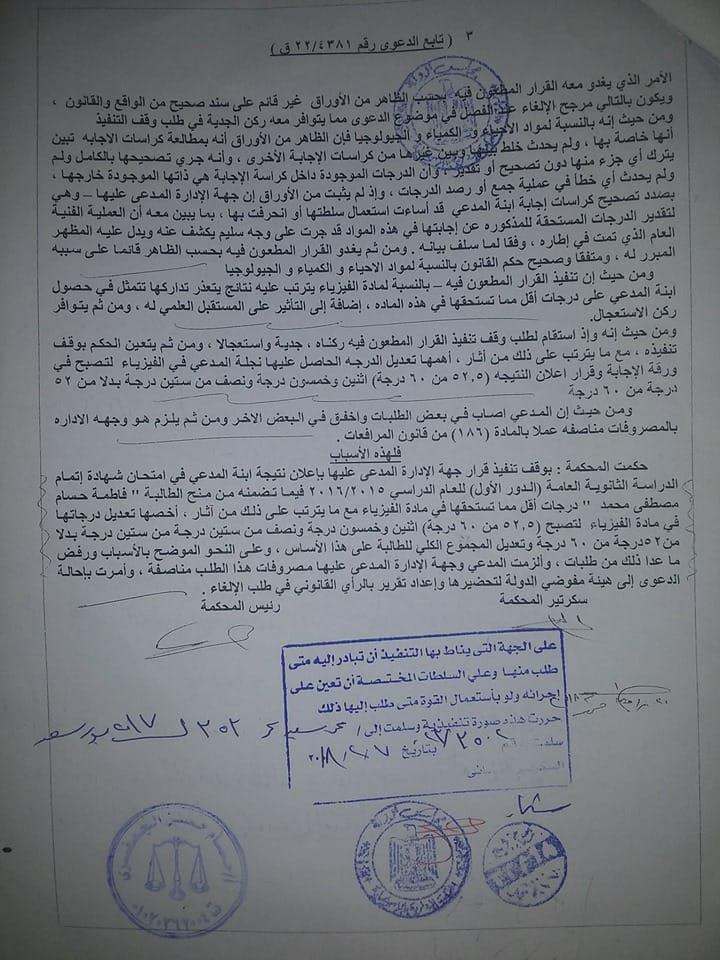 ٣ ( تابع الدعوى رقم ٢٢/٤٣٨١ ق )
الأمر الذي يغدو معه القرار المطعون فيه بحسب الظاهر من الأوراق غير قائم على سند صحيح من الواقع والقانون ،
ويكون بالتالي مرجح الإلغاء عند الفصل في موضوع الدعوى مما يتوافر معه ركن الجدية في طلب وقف التنفيذ
ومن حيث إنه بالنسبة لمواد الأحياء و الكمياء و الجيولوجيا فإن الظاهر من الأوراق أنه بمطالعة كراسات الاجابه تبين
أنها خاصة بها ، ولم يحدث خلط بينها وبين غيرها من كراسات الإجابة الأخرى ، وأنه جري تصحيحها بالكامل ولم
يترك أي جزء منها دون تصحيح أو تقدير ، وأن الدرجات الموجودة داخل كراسة الإجابة هي ذاتها الموجودة خارجها ،
ولم يحدث أي خطأ في عملية جمع أو رصد الدرجات ، وإذ لم يثبت من الأوراق إن جهة الإدارة المدعى عليها – وهي
بصدد تصحيح كراسات إجابة ابنة المدعي قد أساءت استعمال سلطتها أو انحرفت بها ، بما يبين معه أن العملية الفنية
لتقدير الدرجات المستحقة للمذكوره عن إجابتها في هذه المواد قد جرت على وجه سليم يكشف عنه ويدل عليه المظهر
العام الذي تمت في إطاره ، وفقا لما سلف بيانه . ومن ثم يغدو القرار المطعون فيه بحسب الظاهر قائما على سببه
المبرر له ، ومتفقا وصحيح حكم القانون بالنسبة لمواد الاحياء و الكمياء و الجيولوجيا
ومن حيث إن تنفيذ القرار المطعون فيه – بالنسبة لمادة الفيزياء يترتب عليه نتائج يتعذر تداركها تتمثل في حصول
ابنة المدعي على درجات أقل مما تستحقها في هذه الماده ، إضافة إلى التأثير على المستقبل العلمي له ، ومن ثم يتوافر
ركن الاستعجال.
ومن حيث إنه وإذ استقام لطلب وقف تنفيذ القرار المطعون فيه ركناه ، جدية واستعجالا ، ومن ثم يتعين الحكم بوقف
تنفيذه ، مع ما يترتب على ذلك من آثار ، أهمها تعديل الدرجه الحاصل عليها نجلة المدعي في الفيزياء لتصبح في
ورقة الإجابة وقرار اعلان النتيجه (٥٢,٥ من ٦٠ درجة) اثنين وخمسون درجة ونصف من ستين درجة بدلا من ٥٢
درجة من ٦٠ درجة
ومن حيث إن المدعي اصاب في بعض الطلبات واخفق في البعض الاخر ومن ثم يلزم هو وجهه الاداره
بالمصروفات مناصفه عملا بالمادة (١٨٦) من قانون المرافعات .
فلهذه الأسباب
حكمت المحكمة : بوقف تنفيذ قرار جهة الإدارة المدعى عليها بإعلان نتيجة ابنة المدعي في امتحان شهادة إتمام
الدراسة الثانوية العامة (الدور الأول) للعام الدراسي ٢٠١٦/٢٠١٥ فيما تضمنه من منح الطالبة " فاطمة حسام
مصطفى محمد " درجات أقل مما تستحقها في مادة الفيزياء مع ما يترتب على ذلك من آثار ، أخصها تعديل درجاتها
في مادة الفيزياء لتصبح (٥٢,٥ من ٦٠ درجة) اثنين وخمسون درجة ونصف من ستين درجة من ستين درجة بدلا
من٥٢درجة من ٦٠ درجة وتعديل المجموع الكلي للطالبة على هذا الأساس ، وعلى النحو الموضح بالأسباب ورفض
ما عدا ذلك من طلبات ، وألزمت المدعي وجهة الإدارة المدعى عليها مصروفات هذا الطلب مناصفة ، وأمرت بإحالة
الدعوى إلى هيئة مفوضي الدولة لتحضيرها وإعداد تقرير بالرأي القانوني في طلب الإلغاء .
سكرتير المحكمة رئيس المحكمة
على الجهة التى يناط بها التنفيذ أن تبادر إليه متى
طلب منها وعلي السلطات المختصة أن تعين على
إجرائه ولو بأستعمال القوة متى طلب إليها ذلك
حررت هذه صورة تنفيذية وسلمت إلى /
بتاريخ